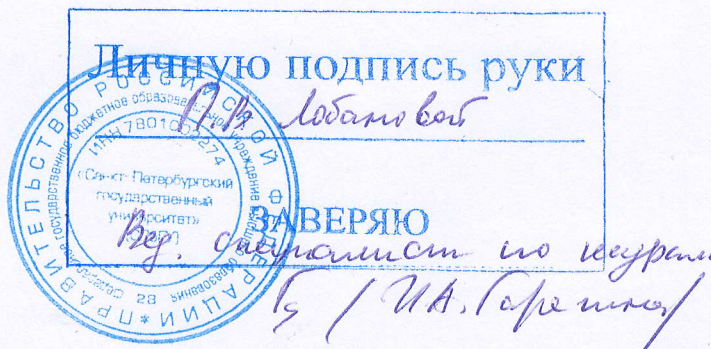 Личную подпись руки
П.В. Лобановой
ЗАВЕРЯЮ
Вед. специалист по кадрам
/ И.А.
ПРАВИТЕЛЬСТВО РОССИЙСКОЙ ФЕДЕРАЦИИ *
федеральное государственное бюджетное образовательное учреждение образования
ИНН 7801002274
«Санкт-Петербургский
государственный
университет»
28